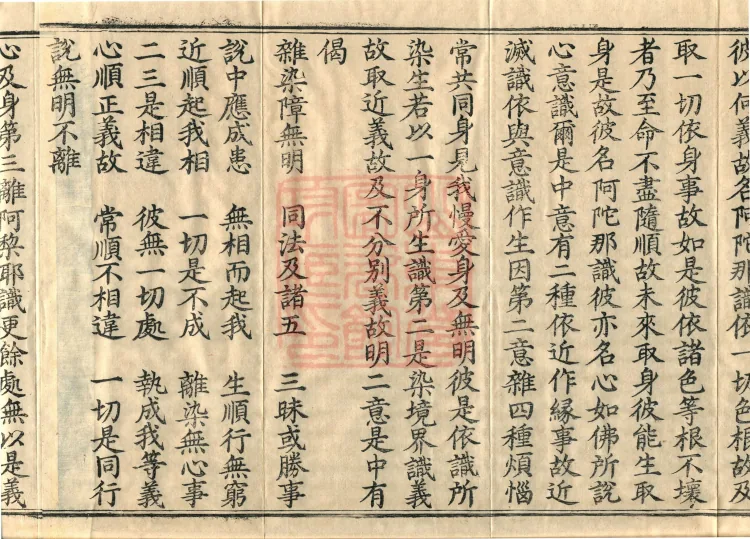 彼以何義故名阿陀那識依一切色根故及
取一切依身事故如是彼依諸色等根不壞
者乃至命不盡隨順故未來取身彼能生取
身是故彼名阿陀那識彼亦名心如佛所說
心意識爾是中意有二種依近作緣事故近
滅識依與意識作生因第二意雜四種煩惱
常共同身見我慢愛身及無明彼是依識所
染生若以一身所生識第二是染境界識義
故取近義故及不分別義故明二意是中有
偈
雜染障無明　同法及諸五　三昧或勝事
說中應成患　無相而起我　生順行無窮
近順起我相　一切是不成　離染無心事
二三是相違　彼無一切處　執成我等義
心順正義故　常順不相違　一切是同行
說無明不離
心及身第三離阿梨耶識更餘處無以是義